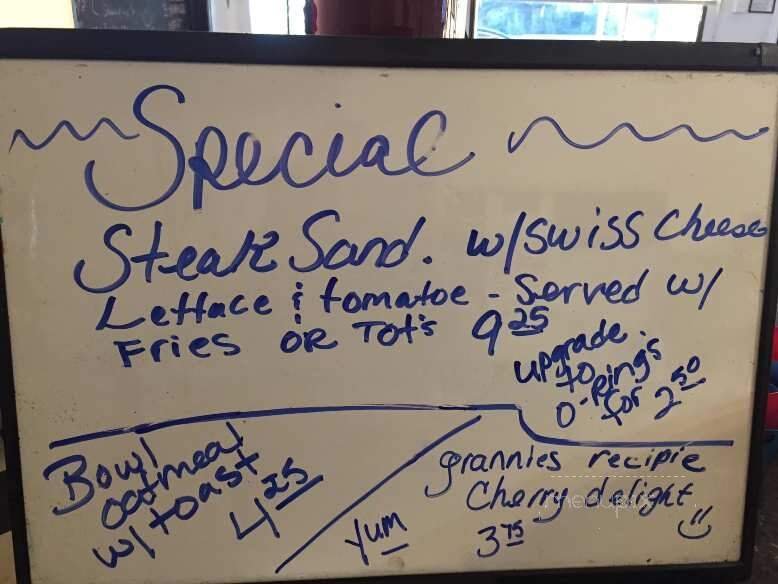 Special
Steak Sand. w/swiss cheese
Lettace & tomatoe - Served w/
Fries OR Tot's 9 25
upgrade.
to
o-rings
for 2 50
Bowl
oatmeal
w/toast
4 25
grannies recipie
Cherry delight
yum
3 75